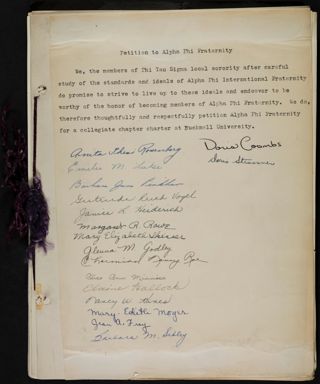 Petition to Alpha Phi Fraternity
We, the members of Phi Tau Sigma local sorority after careful
study of the standards and ideals of Alpha Phi International Fraternity
do promise to strive to live up to these ideals and endeavor to be
worthy of the honor of becoming members of Alpha Phi Fraternity. We do,
therefore thoughtfully and respectfully petition Alpha Phi Fraternity
for a collegiate chapter charter at Bucknell University.
Anita Rosenberg
Doris Coombs
Emilie M.
Doris
Barbara Jane
Gertrude Ruth Vogel
Janice L. Heiderich
Margaret R. Rowe
Mary Elizabeth
Glenna M. Godley
Ann
Elaine Hallock
Nancy W.
Mary Edith Moyer
Jean A. Frey
Barbara M. Sibley